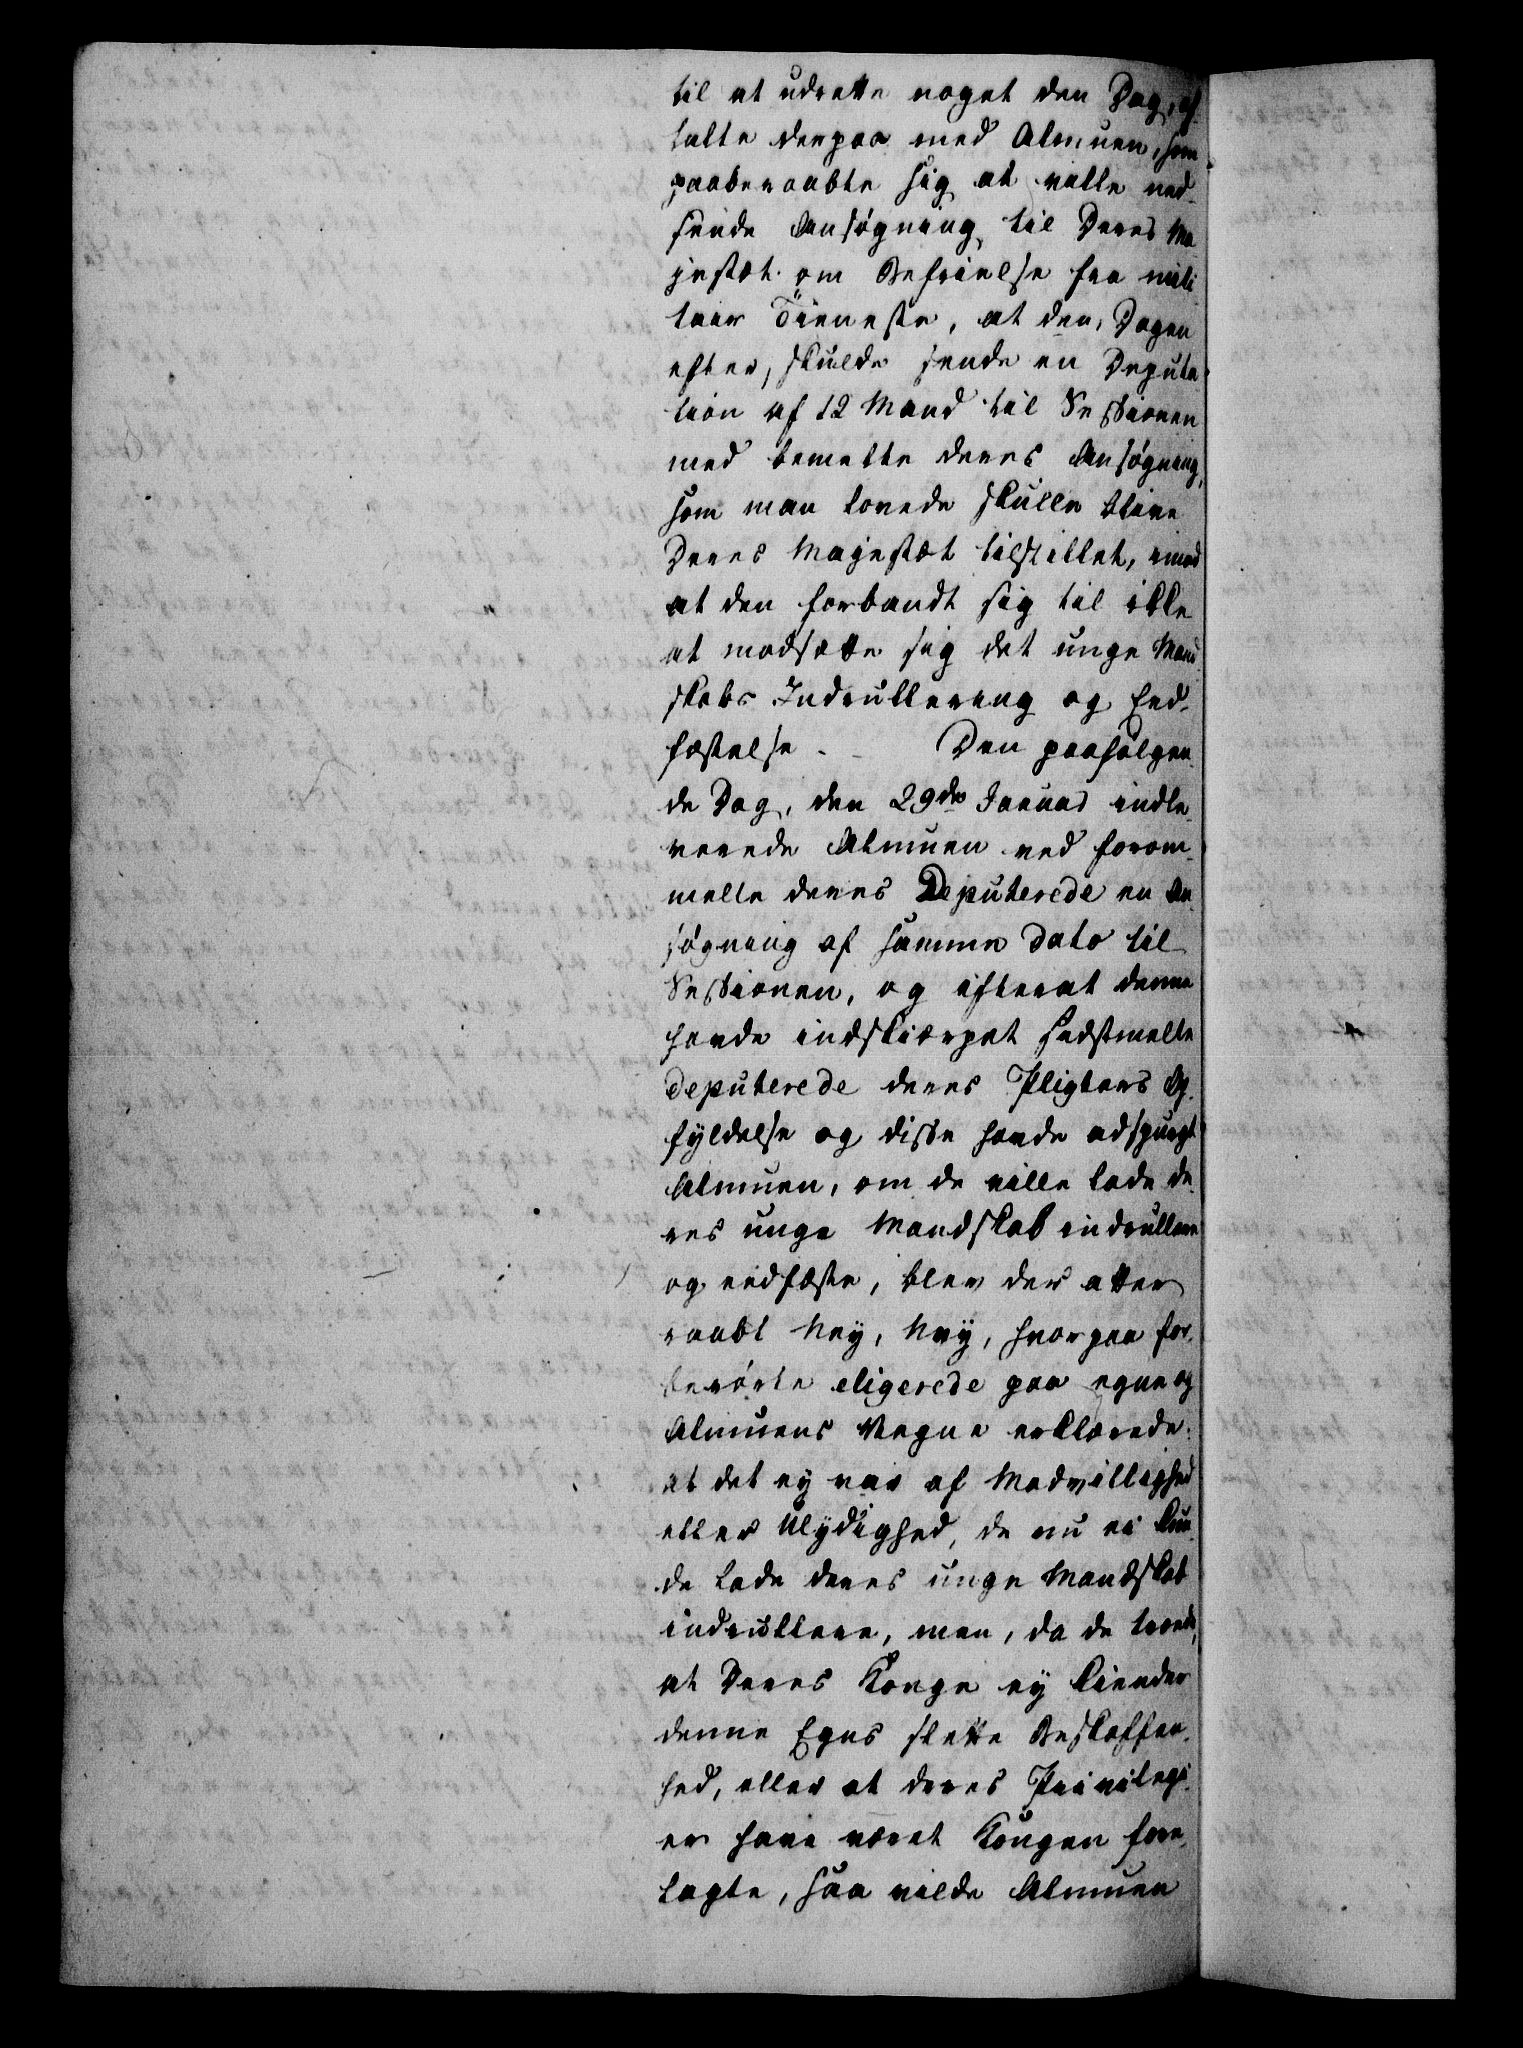 til at udrette noget den Dag, af-
talte derpaa med Almuen, som
paaberaabte sig at ville ned-
sende Ansøgning til Deres Ma-
jestæt om Befrielse fra mili-
tair Tieneste, at den, Dagen
efter, skulde sende en Deputa-
tion af 12 Mand til Sessionen
med bemelte deres Ansøgning,
som man lovede skulle blive
Deres Majestæt tilstillet, imod
at den forbandt sig til ikke
at modsætte sig det unge Mand-
skabs Indrullering og Eed-
fæstelse. - Den paafølgen-
de Dag, den 29de Januar indle-
verede Almuen ved forom-
melte deres Deputerede en An-
søgning af samme Dato til
Sessionen, og efterat denne
havde indskiærpet sidstmelte
deputerede deres Pligters Op-
fyldelse og disse havde adspurgt
Almuen, om de ville lade de-
res unge Mandskab indrullere
og eedfæste, blev der atter
raabt Ney, Ney, hvorpaa for-
berørte eligerede paa egne og
Almuens Vegne erklærede:
at det ey var af Modvillighed
eller Ulydighed, de nu ei kun-
de lade deres unge Mandskab
indrullere, men, da de troede,
at Deres Konge ey kiender
denne Egns slette Beskaffen-
hed, eller at deres Privilegi-
er have været Kongen fore-
lagte, saa vilde Almuen